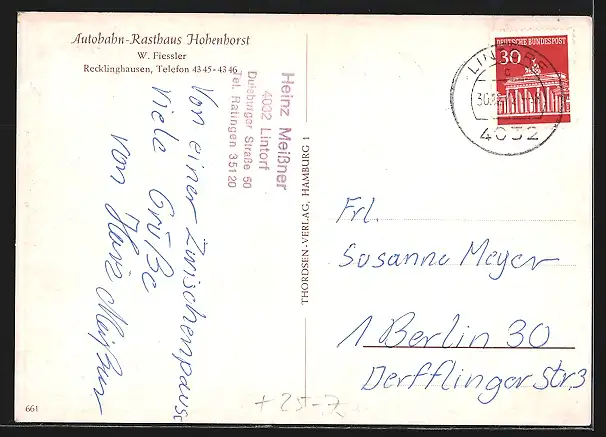 Autobahn-Rasthaus Hohenhorst
W. Fiessler
Recklinghausen, Telefon 43 45 - 43 46
Heinz Meißner
4032 Lintorf
Duisburger Straße 50
Tel. Ratingen 35120
Von einer Zwischenpause
viele Grüße
von Heinz Meißner
THORDSEN-VERLAG, HAMBURG 1
DEUTSCHE BUNDESPOST
30
LINTORF
4032
Frl.
Susanne Meyer
1 Berlin 30
Derfflinger Str. 3
661